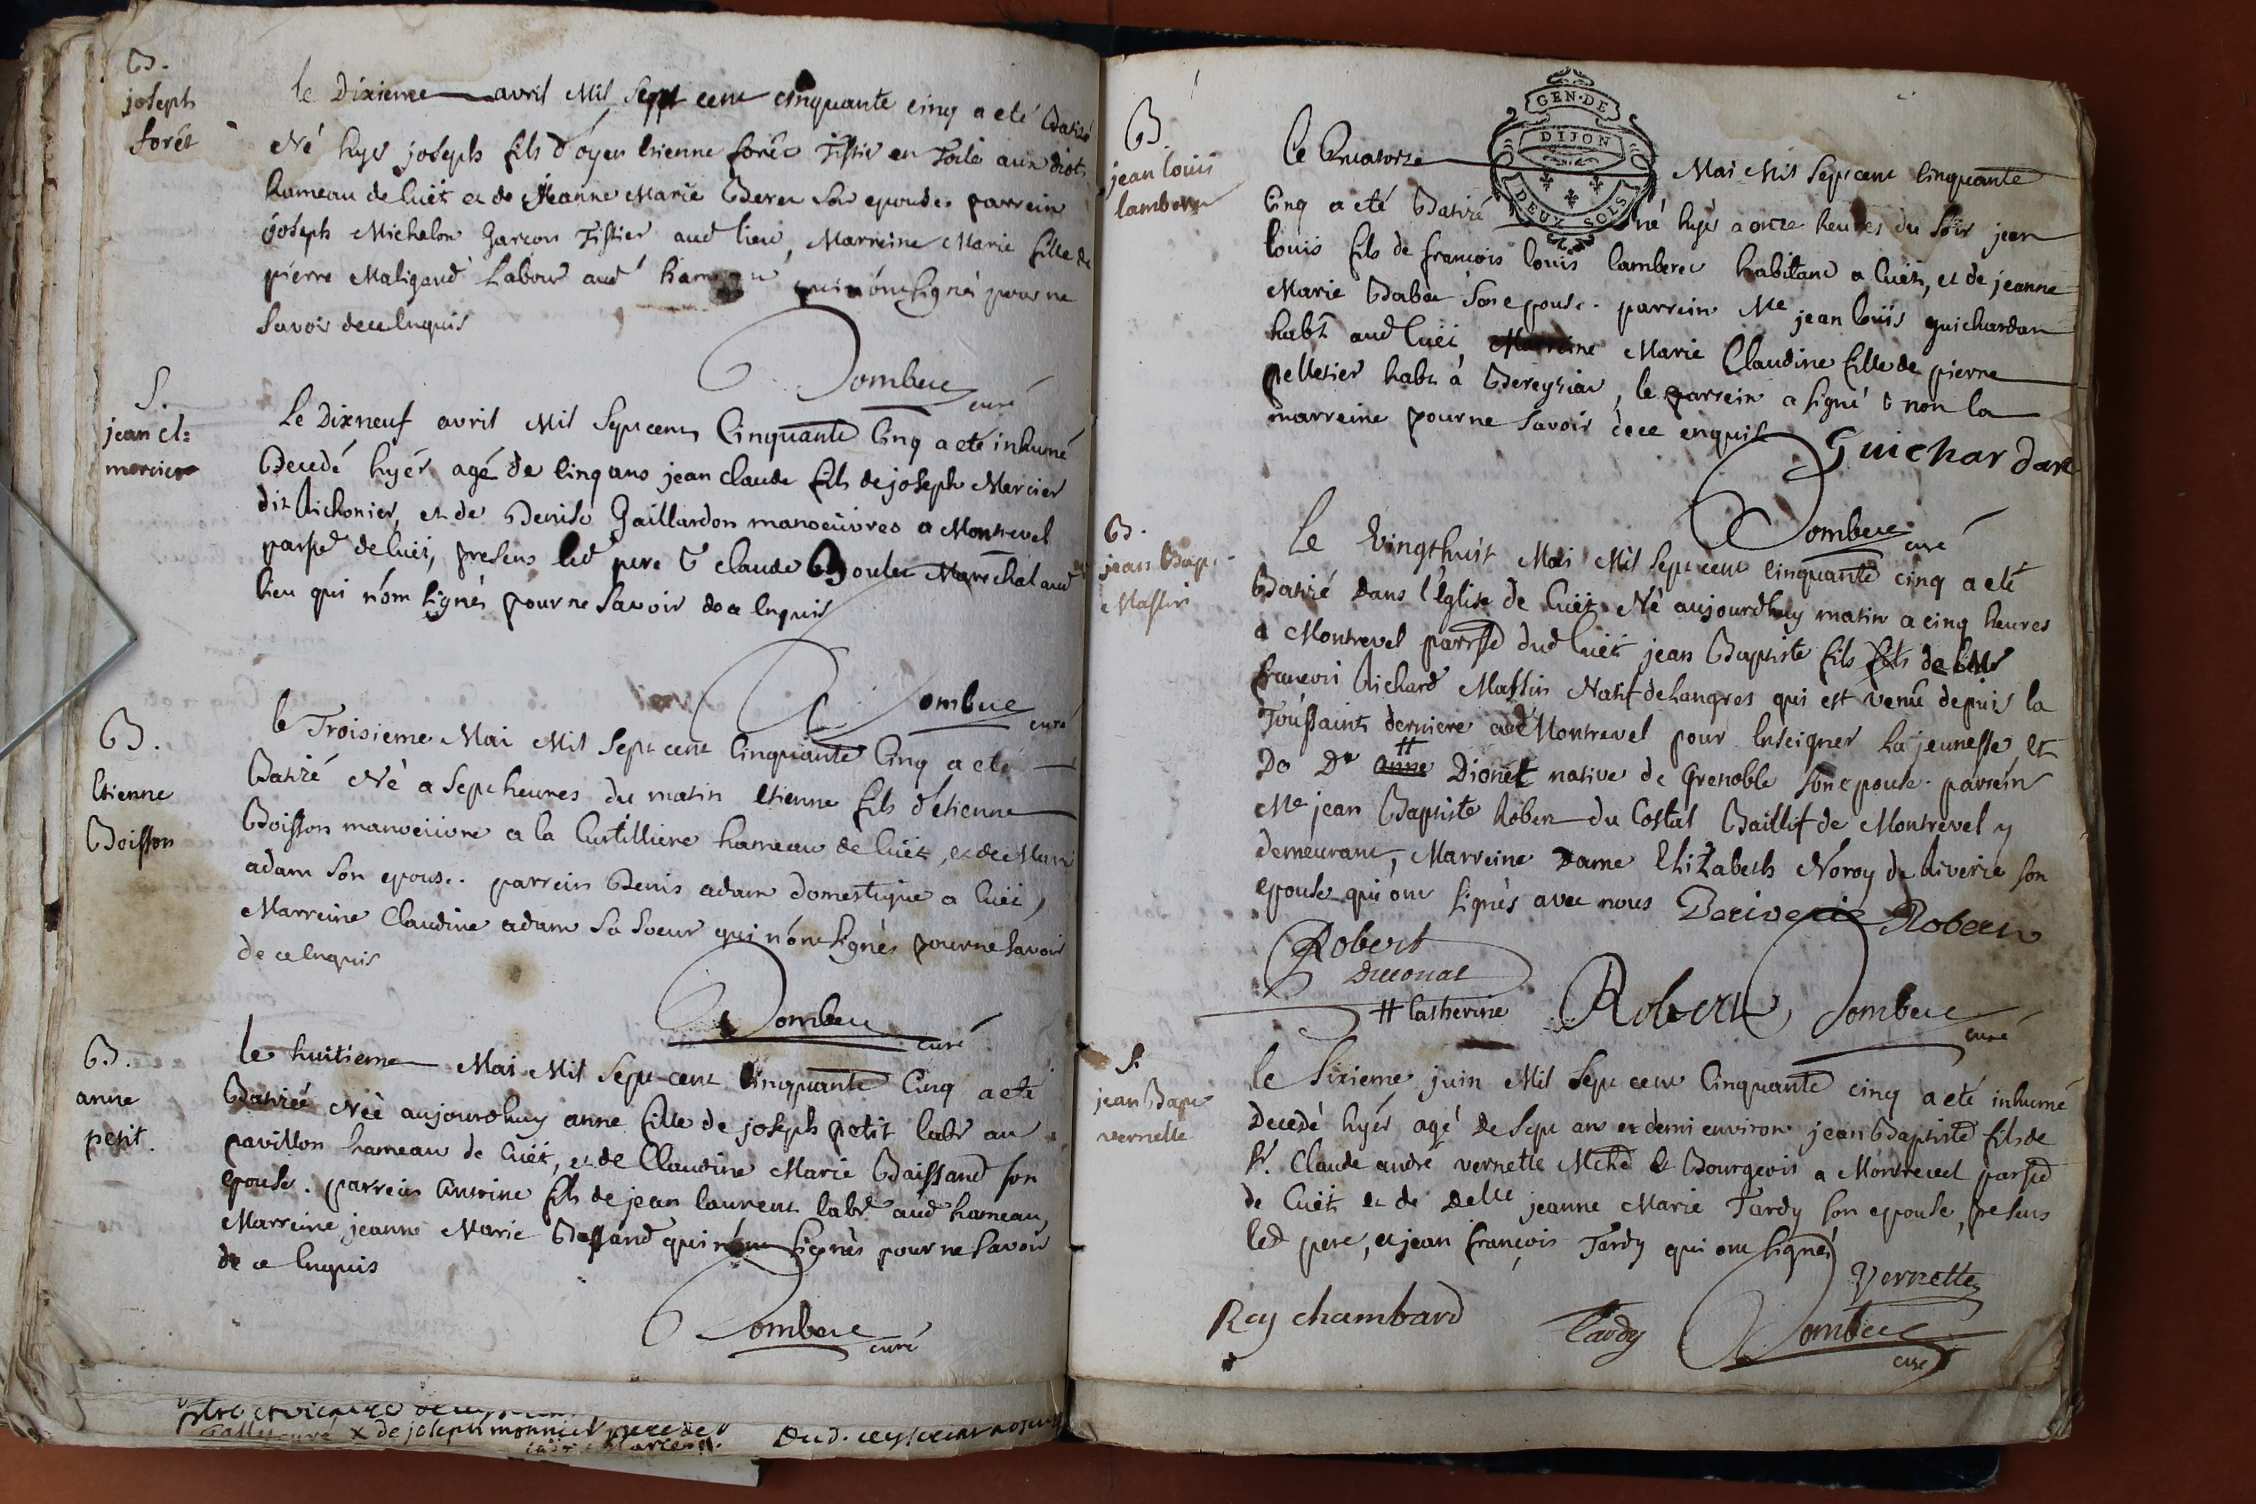 B.
joseph
forêt
le Dixieme avril Mil Sept cent cinquante cinq a eté Batizé
Né hyer joseph fils d'oyen Etienne forêt Tissier en Toile aux diots
hameau de Cuët et de Jeanne Marie Beret son epouse. parrein
joseph Michalon Garçon Tissier aud lieu, Marreine Marie fille de
pierre Maligand Labour aud hameau qui n'ont signés pour ne
savoir de ce Enquis
Dombeÿ
curé
S.
jean cl:
mercier
Le Dixneuf avril Mil Sept cent Cinquante Cinq a eté inhumé
Decedé hyér agé de Cinq ans jean claude fils de joseph Mercier
dit Michonier, et de Denise Gaillardon manoeuvres a Montrevel
parsse de Cuët, presens led pere & claude Boulet Marechal aud
lieu qui n'ont signés pour ne savoir de ce Enquis
curé
B.
Etienne
Boisson
le Troisieme Mai Mil Sept cent Cinquante Cinq a eté
Batizé Né a Sept heures du matin Etienne fils d'étienne
Boisson manoeuvre a la Curtilliere hameau de Cuët, et de Marie
adam son epouse. parrein Denis adam domestique a Cuët,
Marreine Claudine adam sa soeur qui n'ont signés pour ne savoir
de ce Enquis
curé
B.
anne
petit.
le huitieme Mai Mil Sept cent Cinquante Cinq a eté
Batizée Née aujourdhuy anne fille de joseph petit labr au
pavillon hameau de Cuët, et de Claudine Marie Baissand son
epouse. parrein Antoine fils de jean laurent labr aud hameau,
Marreine jeanne Marie Bassand qui n'ont signés pour ne savoir
de ce Enquis
curé
B.
jean louis
lamberet
GEN·DE
DIJON
DEUX SOLS
le Quatorze Mai Mil Sept cent Cinquante
Cinq a eté Batizé né hyér a onze heures du soir jean
louis fils de françois louis lamberet habitant a Cuët, et de jeanne
Marie Babet son epouse. parrein Me jean louis guichardan
habt aud Cuët Marreine Marie Claudine fille de pierre
pelletier habt à Bereyziat, le parrein a signé & non la
marreine pour ne savoir de ce enquis
Guichardant
curé
B.
jean Bapt.
Massin
Le Vingthuit Mai Mil Sept cent Cinquante cinq a eté
Batizé dans l'Eglise de Cuët Né aujourdhuy matin a cinq heures
a Montrevel parsse dud Cuët jean Baptiste fils fils de
françois Richard Massin Natif de langres qui est venû depuis la
Toussaint derniere aud Montrevel pour Enseigner la jeunesse Et
De De # anne Dionet native de Grenoble son epouse. parrein
Me jean Baptiste Robert du Costal Baillif de Montrevel y
demeurant, Marreine Dame Elizabeth Noroy de Riverie son
epouse qui ont signés avec nous Deriverie Robert
Robert
Ducostal
# Catherine
Robert
curé
S.
jean Bapt
vernette
le Sixieme juin Mil Sept cent Cinquante cinq a eté inhumé
Decedé hyér agé de Sept ans et demi environ jean Baptiste fils de
Sr. Claude andré vernette Mchd & Bourgeois a Montrevel parsse
de Cuët et de Delle jeanne Marie Tardy son epouse, presens
led pere, et jean françois Tardy qui ont signés
Vernette
Rey chambard
Tardy
curé